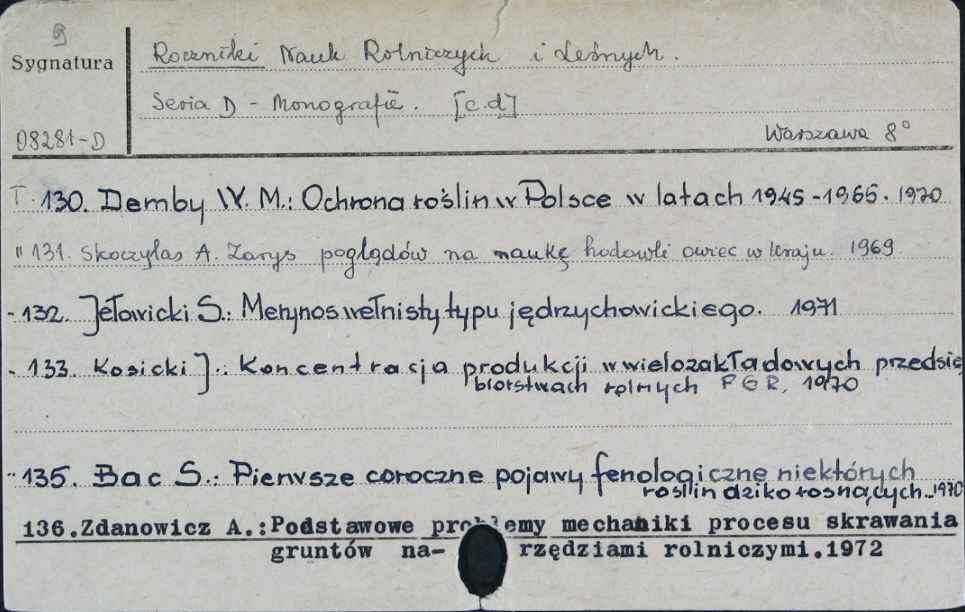 9
Sygnatura
Roczniki Nauk Rolniczych i Leśnych.
Seria D - Monografie. [c.d]
08281-D
Warszawa 8°
T. 130. Demby W. M.: Ochrona roślin w Polsce w latach 1945-1965. 1970
" 131. Skoczylas A. Zarys poglądów na naukę hodowli owiec w kraju. 1969.
- 132. Jełowicki S.: Merynos wełnisty typu jędrzychowickiego. 1971
- 133. Kosicki J.: Koncentracja produkcji w wielozakładowych przedsię
biorstwach rolnych PGR. 1970
" 135. Bac S.: Pierwsze coroczne pojawy fenologiczne niektórych
roślin dziko rosnących. 1970
136.Zdanowicz A.:Podstawowe problemy mechaniki procesu skrawania
gruntów na- rzędziami rolniczymi.1972